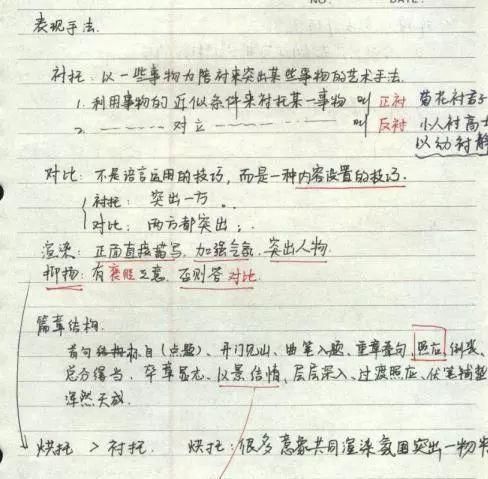 NO. DATE.
表现手法.
衬托: 以一些事物为陪衬来突出某些事物的艺术手法.
1. 利用事物的近似条件来衬托某一事物 叫 正衬 菊花衬君子
2. 对立 叫 反衬 小人衬高士
以动衬静
对比: 不是语言运用的技巧, 而是一种内容设置的技巧.
衬托: 突出一方.
对比: 两方都突出;.
渲染: 正面直接描写, 加强气氛, 突出人物.
抑扬: 有褒贬之意, 否则答对比.
篇章结构.
首句标目(点题)、开门见山、曲笔入题、重章叠句、照应、倒装、
总分得当、卒章显志、以景结情、层层深入、过渡照应、伏笔铺垫
浑然天成.
烘托 > 衬托. 烘托: 很多意象共同渲染氛围突出一物